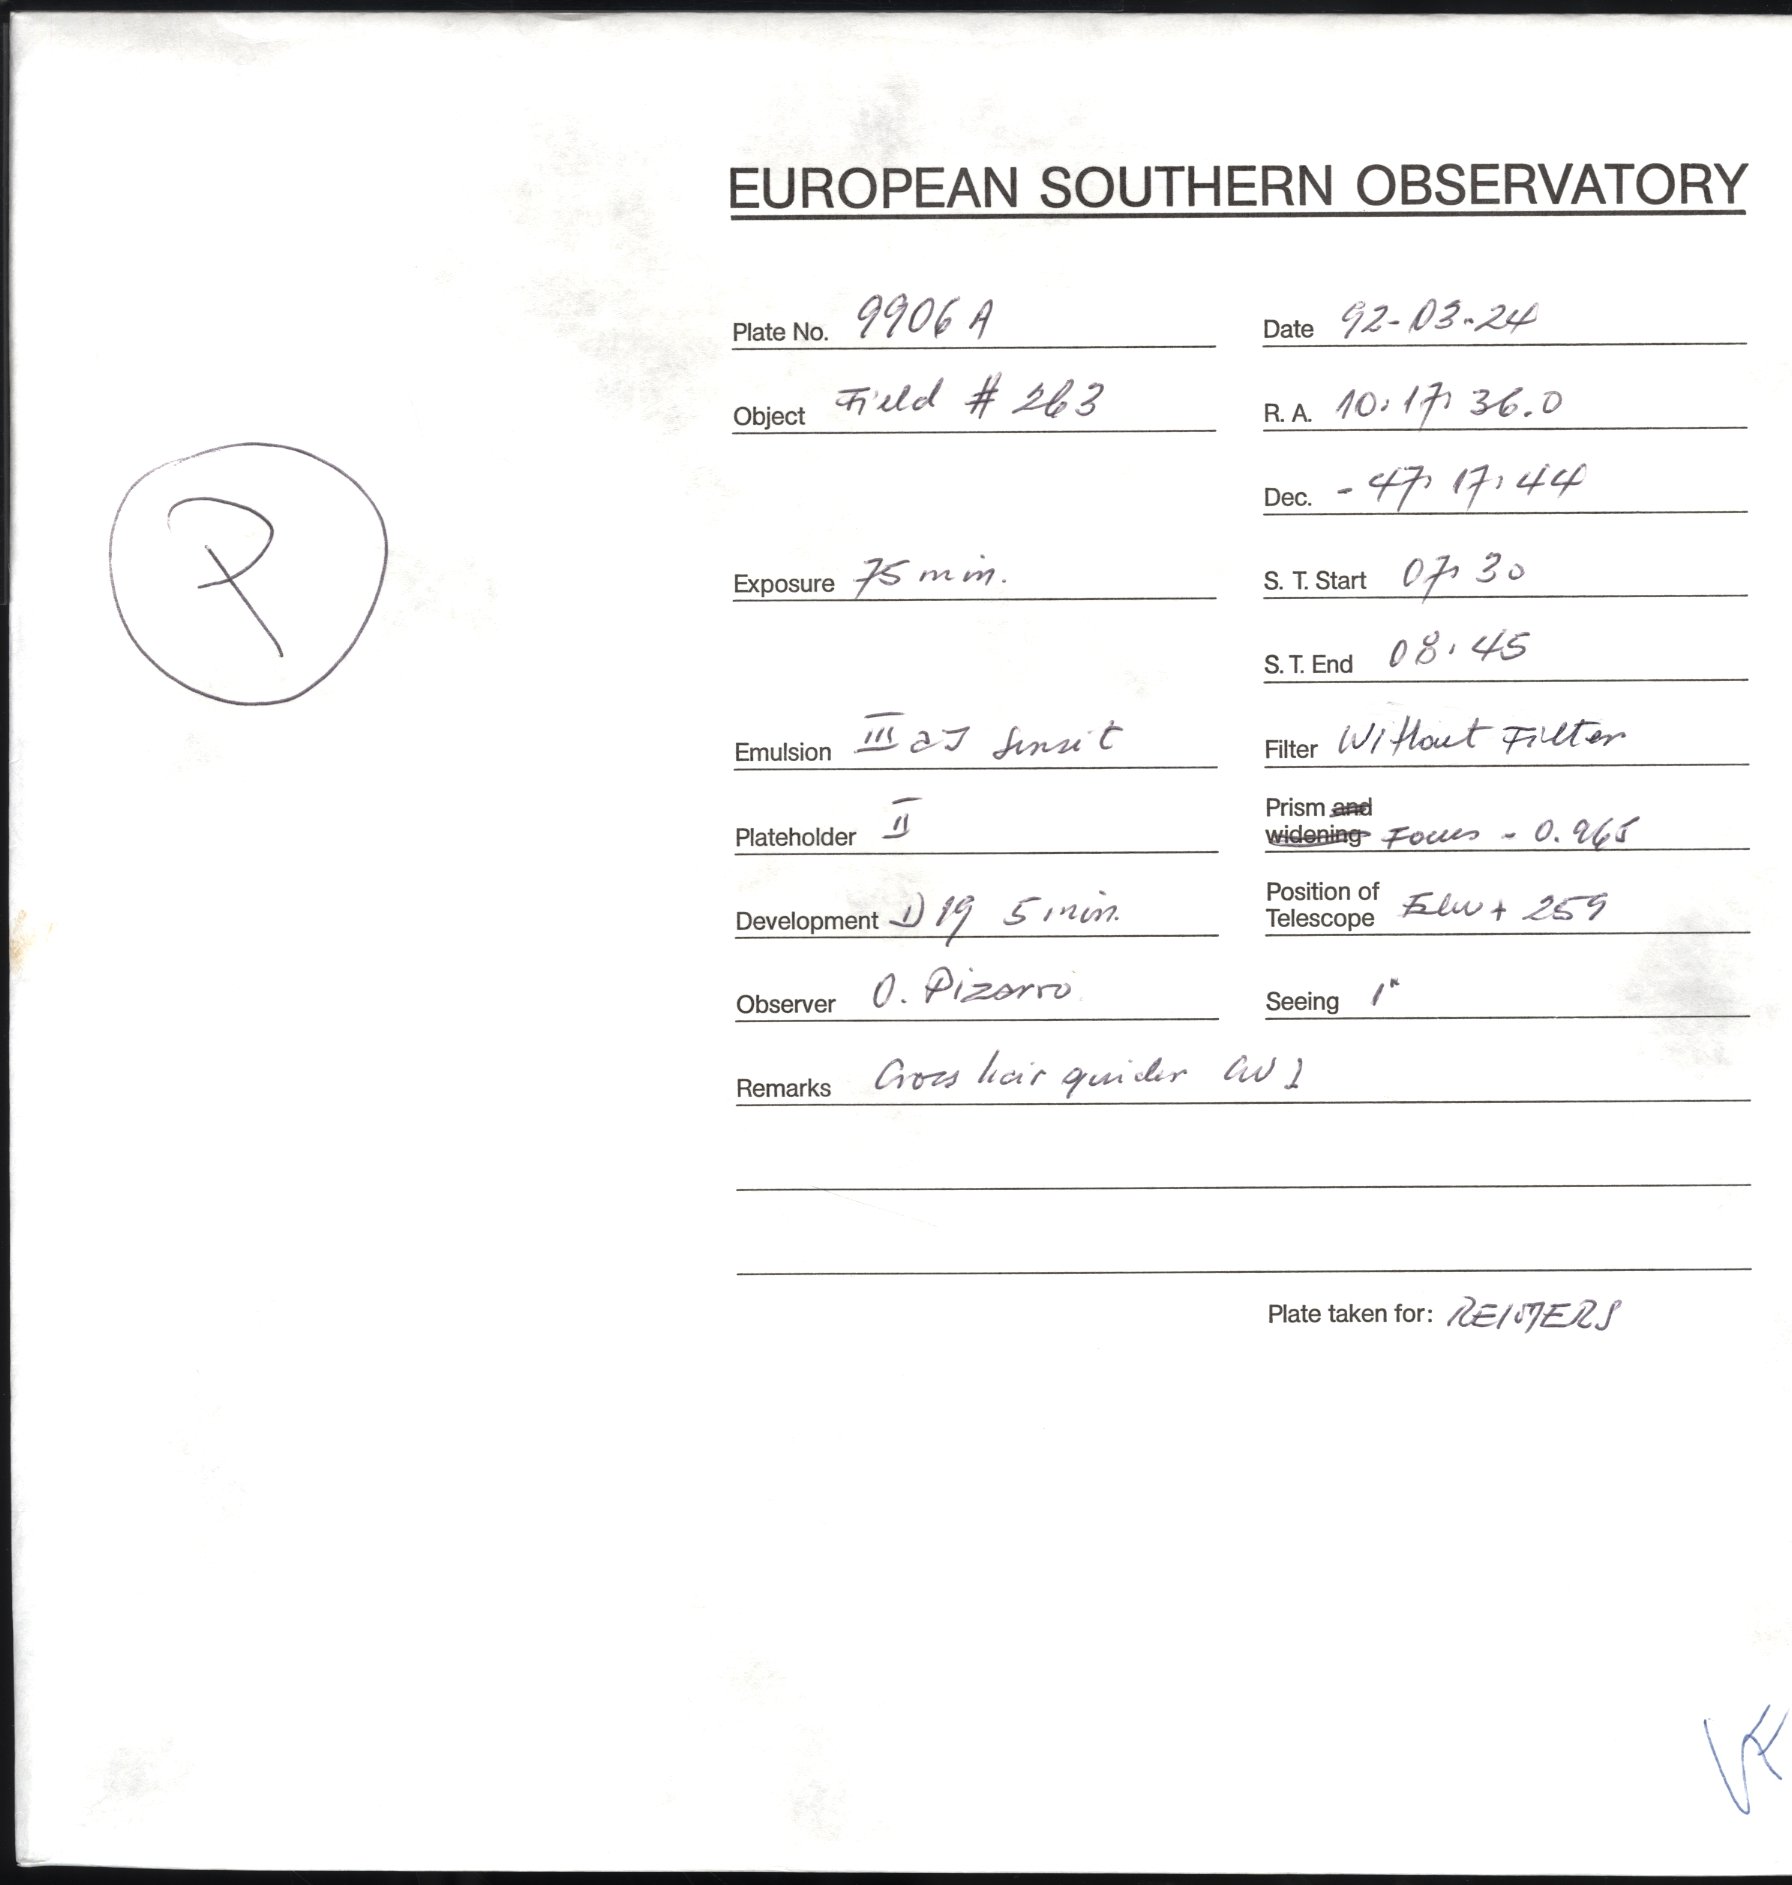 EUROPEAN SOUTHERN OBSERVATORY
Plate No. 9906 A
Date 92-03-24
Object Field # 263
R. A. 10: 17: 36.0
Dec. - 47: 17: 44
R
Exposure 75 min.
S. T. Start 07: 30
S. T. End 08: 45
Emulsion III aJ sensit
Filter Without Filter
Plateholder II
Prism and widening Focus - 0.965
Development D19 5 min.
Position of Telescope + 259
Observer O. Pizarro
Seeing 1"
Remarks Cross hair guider
Plate taken for: REIMERS